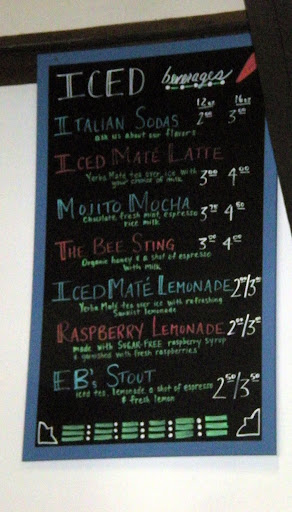 ICED beverages
12oz 16oz
ITALIAN SODAS 2⁰⁰ 3⁰⁰
ask us about our flavors
ICED MATÉ LATTE
Yerba Maté tea over ice with 3⁰⁰ 4⁰⁰
your choice of milk
MOJITO MOCHA 3⁷⁵ 4⁵⁰
chocolate, fresh mint, espresso
rice milk
THE BEE STING 3⁰⁰ 4⁰⁰
Organic honey & a shot of espresso
with milk
ICED MATÉ LEMONADE 2⁰⁰/3⁰⁰
Yerba Maté tea over ice with refreshing
Sunkist lemonade
RASPBERRY LEMONADE 2⁰⁰/3⁰⁰
made with SUGAR-FREE raspberry syrup
& garnished with fresh raspberries
EB's STOUT 2⁵⁰/3⁵⁰
iced tea, lemonade a shot of espresso
& fresh lemon